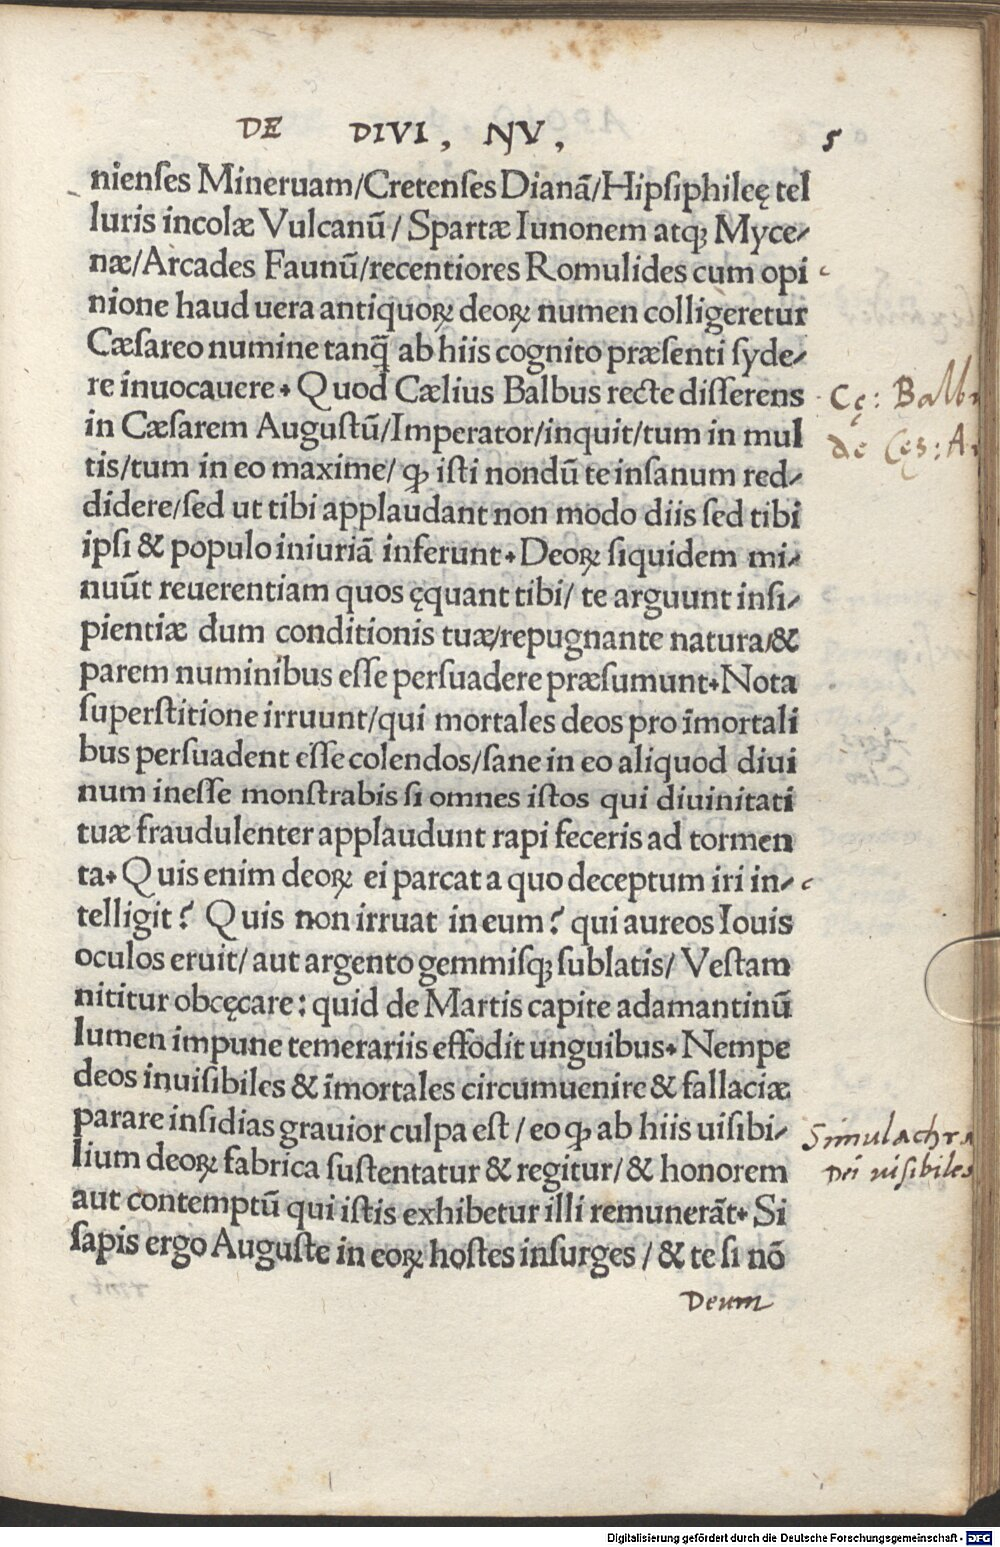 DE DIVI, NV, 5
nienſes Mineruam/Cretenſes Dianã/Hipſiphileę tel
luris incolæ Vulcanũ/ Spartæ Iunonem atqꝫ Myce⸗
næ/Arcades Faunũ/recentiores Romulides cum opi
nione haud uera antiquoꝝ deoꝝ numen colligeretur
Cæſareo numine tanq̃ ab hiis cognito præſenti ſyde⸗
re inuocauere. Quod Cælius Balbus recte diſſerens
in Cæſarem Auguſtũ/Imperator/inquit/tum in mul
tis/tum in eo maxime/ ꝙ iſti nondũ te inſanum red⸗
didere/ſed ut tibi applaudant non modo diis ſed tibi
ipſi & populo iniuriã inferunt. Deoꝝ ſiquidem mi⸗
nuũt reuerentiam quos ęquant tibi/ te arguunt inſi⸗
pientiæ dum conditionis tuæ/repugnante natura/&
parem numinibus eſſe perſuadere præſumunt. Nota
ſuperſtitione irruunt/qui mortales deos pro ĩmortali
bus perſuadent eſſe colendos/ſane in eo aliquod diui
num ineſſe monſtrabis ſi omnes iſtos qui diuinitati
tuæ fraudulenter applaudunt rapi feceris ad tormen
ta. Quis enim deoꝝ ei parcat a quo deceptum iri in⸗
telligit? Quis non irruat in eum? qui aureos Iouis
oculos eruit/ aut argento gemmiſqꝫ ſublatis/ Veſtam
nititur obcęcare: quid de Martis capite adamantinũ
lumen impune temerariis effodit unguibus. Nempe
deos inuiſibiles & ĩmortales circumuenire & fallaciæ
parare inſidias grauior culpa eſt / eo ꝙ ab hiis uiſibi⸗
lium deoꝝ fabrica ſuſtentatur & regitur/ & honorem
aut contemptũ qui iſtis exhibetur illi remunerãt. Si
ſapis ergo Auguſte in eoꝝ hoſtes inſurges / & te ſi nõ
Deum
Cę: Balb
de Cęs: A
Simulachra
Dei uiſibiles
Digitalisierung gefördert durch die Deutsche Forschungsgemeinschaft - DFG